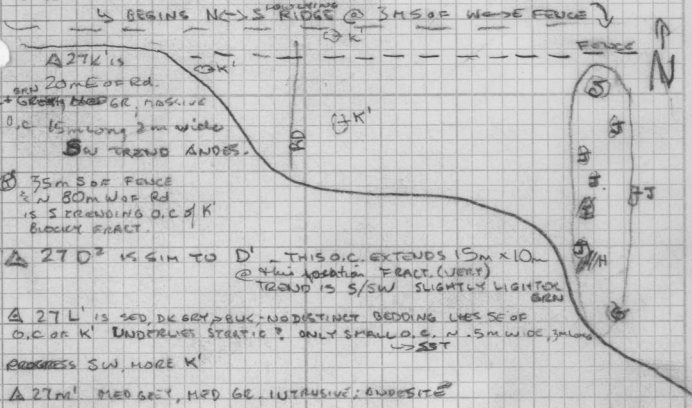 ↳ BEGINS N↔S FOLLOWING RIDGE @ 3MS OF W↔E FENCE
K'
FENCE
N
△ 27K' is
20m E OF Rd.
K'
GRN
GR, MASSIVE
O.C 15m long 2m wide
SW TREND ANDES.
RD
K'
J
35m S OF FENCE
& ~ 80m W OF Rd
IS S TRENDING O.C of K'
BLOCKY FRACT.
J
△ 27 D² IS SIM TO D' - THIS O.C. EXTENDS 15m x 10m
@ this location FRACT. (VERT)
TREND IS S/SW SLIGHTLY LIGHTER
GRN
H
△ 27 L' IS SED, DK GRY, > BLK, NO DISTINCT BEDDING LIES SE OF
O.C OF K' UNDERLIES STRATIG? ONLY SMALL O.C. ~ .5m WIDE, 3m long
↳ SST
PROGRESS SW, MORE K'
△ 27m' MED GREY, MED GR. INTRUSIVE; ANDESITE